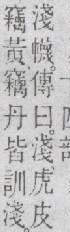 淺幭傳曰。淺虎皮
竊黃竊丹皆訓淺。